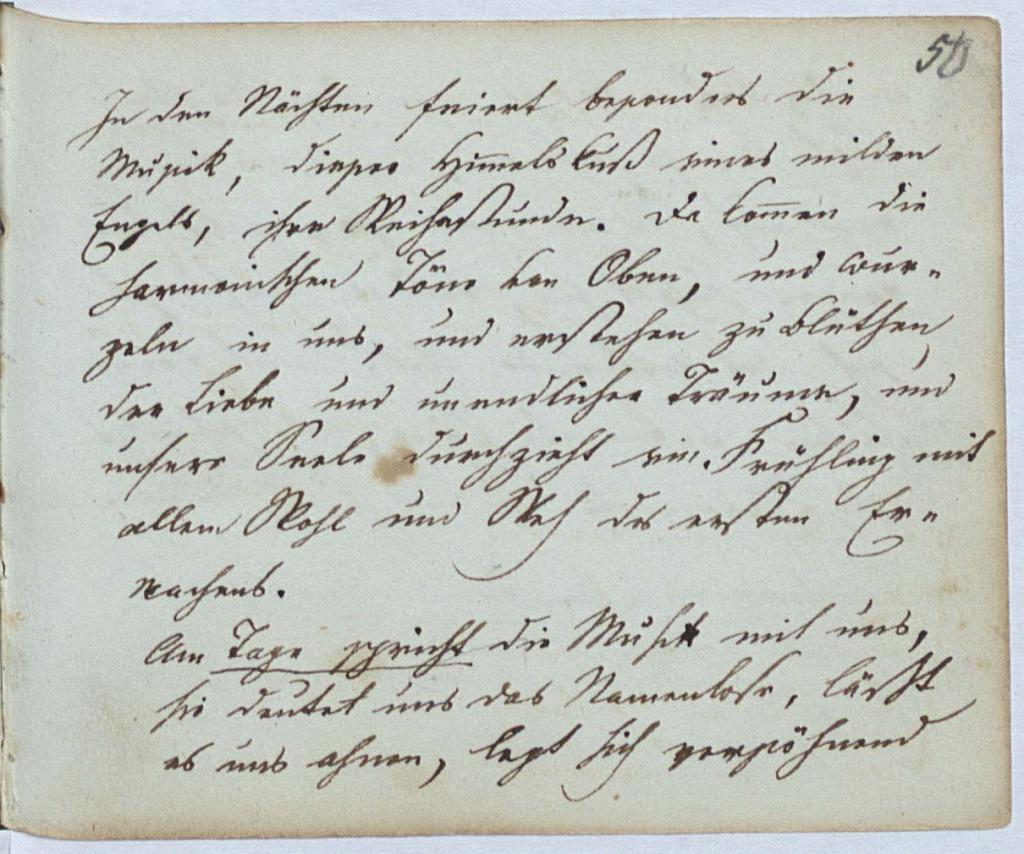 50
In den Nächten feiert besonders die
Musik, dieser Him̅elskuß eines milden
Engels, ihre Weihestunde. Da kom̅en die
harmonischen Töne von Oben, und wur=
zeln in uns, und erstehen zu Blüthen
der Liebe und unendlicher Träume, und
unsere Seele durchzieht ein Frühling mit
allem Wohl und Weh des ersten Er=
wachens.
Am Tage spricht die Musik mit uns,
sie deutet uns das Namenlose, läßt
es uns ahnen, legt sich versöhnend